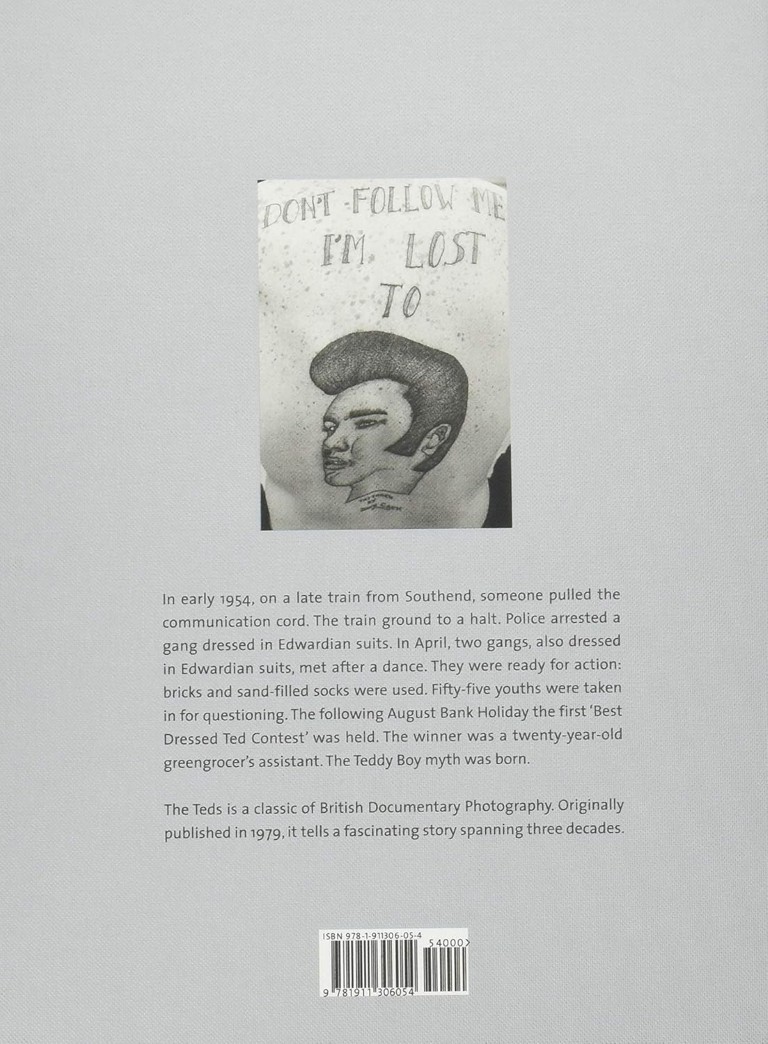 DON'T FOLLOW ME
I'M LOST
TO
In early 1954, on a late train from Southend, someone pulled the
communication cord. The train ground to a halt. Police arrested a
gang dressed in Edwardian suits. In April, two gangs, also dressed
in Edwardian suits, met after a dance. They were ready for action:
bricks and sand-filled socks were used. Fifty-five youths were taken
in for questioning. The following August Bank Holiday the first ‘Best
Dressed Ted Contest’ was held. The winner was a twenty-year-old
greengrocer’s assistant. The Teddy Boy myth was born.
The Teds is a classic of British Documentary Photography. Originally
published in 1979, it tells a fascinating story spanning three decades.
ISBN 978-1-911306-05-4
54000>
9 781911 306054